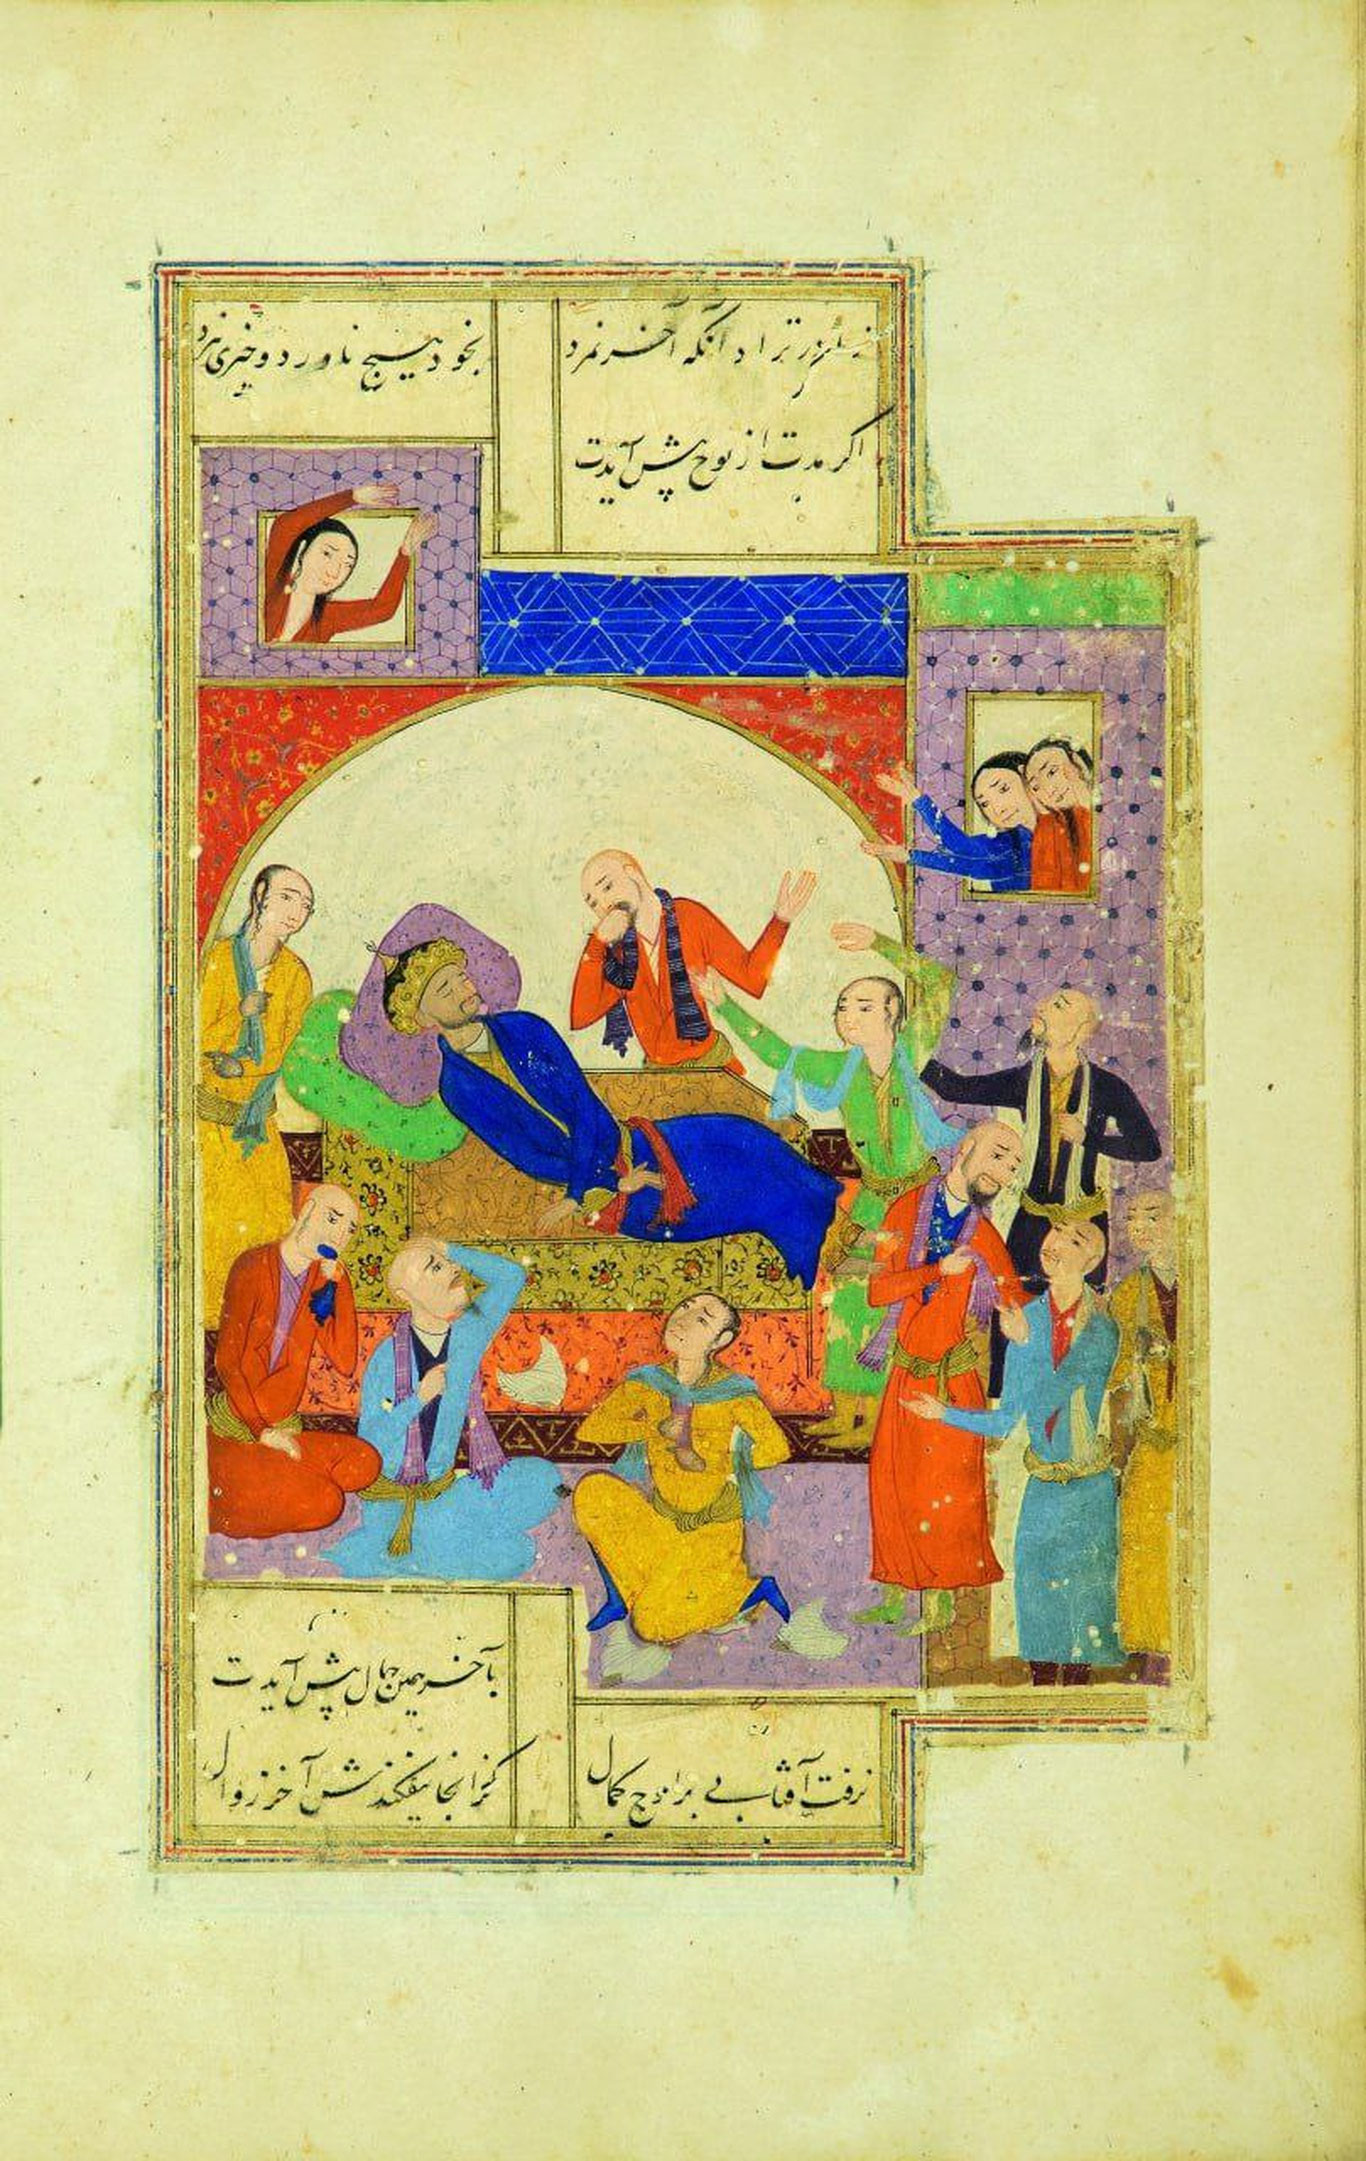 آنکه آخر نمرد
بخود هیچ ناورد و چیزی نبرد
اگر مدت از نوح پیش آیدت
بآخر همین حال پیش آیدت
نرفت آفتابی بر اوج کمال
کزانجا نیفکندش آخر زوال